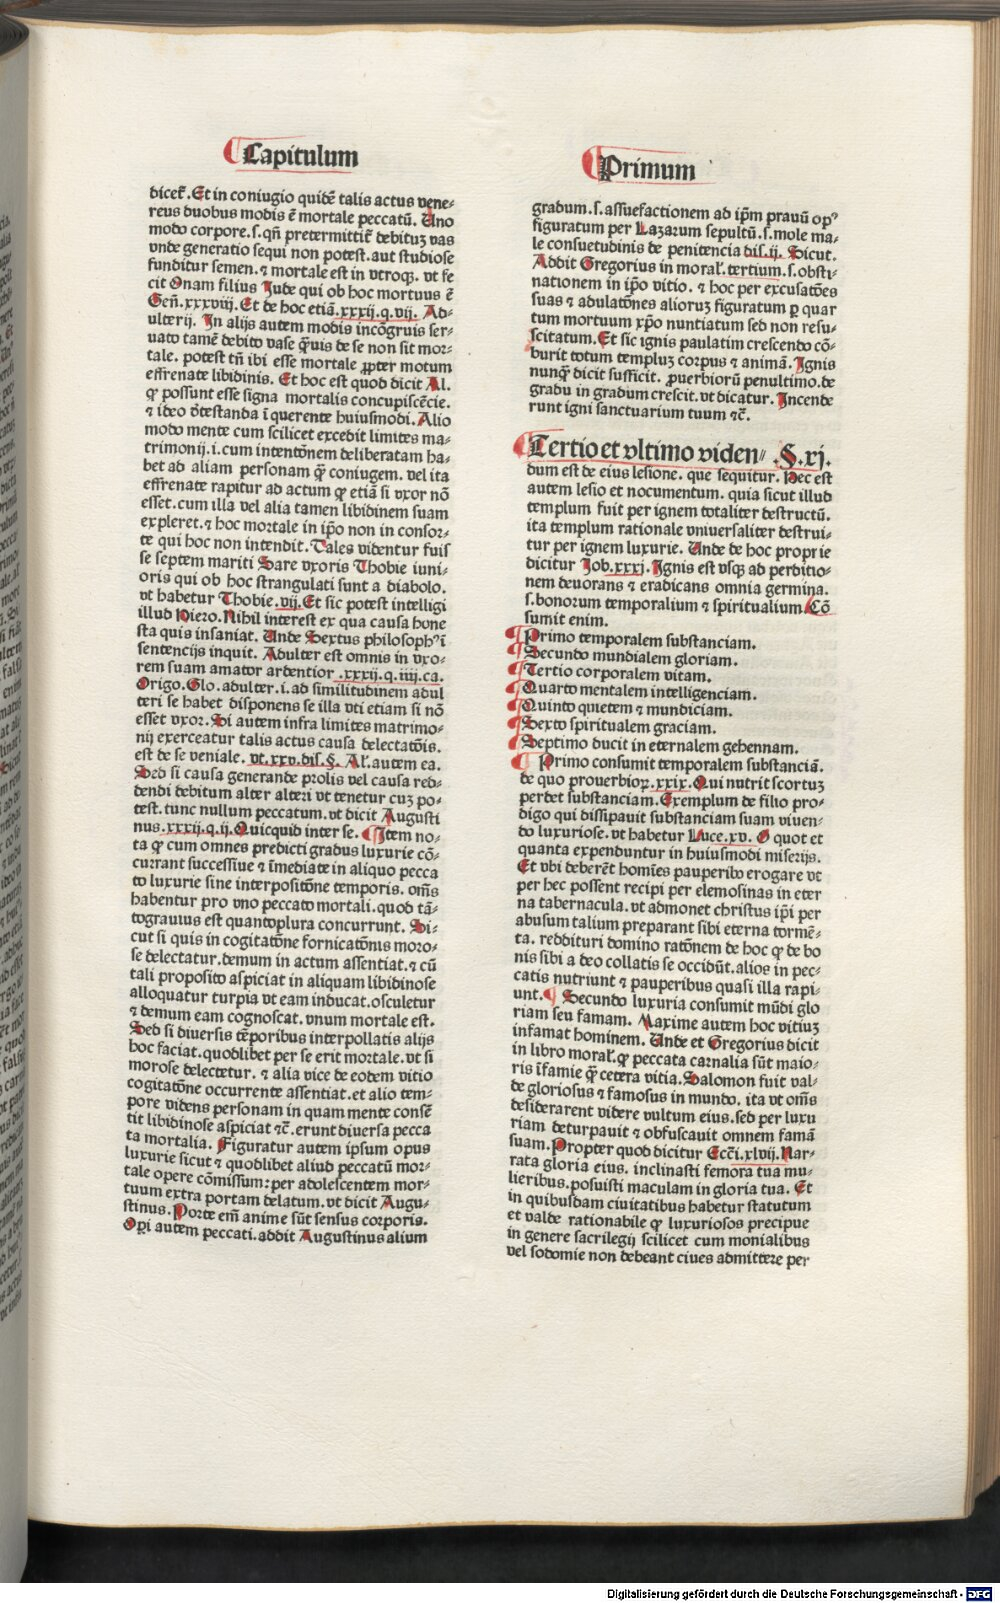 Capitulum
dicet̄. Et in coniugio quidē talis actus vene⸗
reus duobus modis ē mortale peccatū. Uno
modo corpore. s. qn̄ pretermittit̄ debituꝫ vas
vnde generatio sequi non potest. aut studiose
funditur semen. ⁊ mortale est in vtroqꝫ. vt fe
cit Onam filius Jude qui ob hoc mortuus ē
Geñ. xxxviij. Et de hoc etiā. xxxij. q. vij. Ad⸗
ulterij. In alijs autem modis incōgruis ser⸗
uato tamē debito vase qͣuis de se non sit mor⸗
tale. potest tn̄ ibi esse mortale ꝓpter motum
effrenate libidinis. Et hoc est quod dicit Al.
ꝙ possunt esse signa mortalis concupiscēcie.
⁊ ideo ōtestanda ī querente huiusmodi. Alio
modo mente cum scilicet excedit limites ma⸗
trimonij. i. cum intentōnem deliberatam ha⸗
bet ad aliam personam qͣ coniugem. vel ita
effrenate rapitur ad actum ꝙ etiā si vxor nō
esset. cum illa vel alia tamen libidinem suam
expleret. ⁊ hoc mortale in ip̄o non in consor⸗
te qui hoc non intendit. Tales videntur fuis
se septem mariti Sare vxoris Thobie iuni⸗
oris qui ob hoc strangulati sunt a diabolo.
vt habetur Thobie. vij. Et sic potest intelligi
illud Hiero. Nihil interest ex qua causa hone
sta quis insaniat. Unde Sextus philosophꝰ ī
sentencijs inquit. Adulter est omnis in vxo⸗
rem suam amator ardentior. xxxij. q. iiij. ca.
Origo. Glo. adulter. i. ad similitudinem adul
teri se habet disponens se illa vti etiam si nō
esset vxor. Si autem infra limites matrimo⸗
nij exerceatur talis actus causa delectatōis.
est de se veniale. vt. xxv. dis. §. Al̄. autem ea.
Sed si causa generande prolis vel causa red⸗
dendi debitum alter alteri vt tenetur cuꝫ po⸗
test. tunc nullum peccatum. vt dicit Augusti
nus. xxxij. q. ij. Quicquid inter se. ¶ Item no⸗
ta ꝙ cum omnes predicti gradus luxurie cō⸗
currant successiue ⁊ īmediate in aliquo pecca
to luxurie sine interpositōne temporis. om̄s
habentur pro vno peccato mortali. quod tā⸗
tograuius est quantoplura concurrunt. Si⸗
cut si quis in cogitatōne fornicatōnis moro⸗
se delectatur. demum in actum assentiat. ⁊ cū
tali proposito aspiciat in aliquam libidinose
alloquatur turpia vt eam inducat. osculetur
⁊ demum eam cognoscat. vnum mortale est.
Sed si diuersis tēporibus interpollatis alijs
hoc faciat. quodlibet per se erit mortale. vt si
morose delectetur. ⁊ alia vice de eodem vitio
cogitatōne occurrente assentiat. et alio tem⸗
pore videns personam in quam mente consē
tit libidinose aspiciat ⁊c̄. erunt diuersa pecca
ta mortalia. Figuratur autem ipsum opus
luxurie sicut ⁊ quodlibet aliud peccatū mor⸗
tale opere cōmissum: per adolescentem mor⸗
tuum extra portam delatum. vt dicit Augu⸗
stinus. Porte em̄ anime sūt sensus corporis.
Op̄i autem peccati. addit Augustinus alium
Primum
gradum. s. assuefactionem ad ip̄m prauū opꝰ
figuratum per Lazarum sepultū. s. mole ma⸗
le consuetudinis de penitencia dis. ij. Sicut.
Addit Gregorius in moral̄. tertium. s. obsti⸗
nationem in ip̄o vitio. ⁊ hoc per excusatōes
suas ⁊ adulatōnes alioruꝫ figuratum ꝑ quar
tum mortuum xp̄o nuntiatum sed non resu⸗
scitatum. Et sic ignis paulatim crescendo cō⸗
burit totum templuꝫ corpus ⁊ animā. Ignis
nunqͣ dicit sufficit. ꝓuerbiorū penultimo. de
gradu in gradum crescit. vt dicatur. Incende
runt igni sanctuarium tuum ⁊c̄.
¶ Tertio et vltimo viden⸗ .§. xj.
dum est de eius lesione. que sequitur. Hec est
autem lesio et nocumentum. quia sicut illud
templum fuit per ignem totaliter destructū.
ita templum rationale vniuersaliter destrui⸗
tur per ignem luxurie. Unde de hoc proprie
dicitur Job. xxxj. Ignis est vsqꝫ ad perditio⸗
nem deuorans ⁊ eradicans omnia germina.
s. bonorum temporalium ⁊ spiritualium. Cō
sumit enim.
¶ Primo temporalem substanciam.
¶ Secundo mundialem gloriam.
¶ Tertio corporalem vitam.
¶ Quarto mentalem intelligenciam.
¶ Quinto quietem ⁊ mundiciam.
¶ Sexto spiritualem graciam.
¶ Septimo ducit in eternalem gehennam.
¶ Primo consumit temporalem substanciā.
de quo prouerbioꝝ. xxix. Qui nutrit scortuꝫ
perdet substanciam. Exemplum de filio pro⸗
digo qui dissipauit substanciam suam viuen⸗
do luxuriose. vt habetur Luce. xv. O quot et
quanta expenduntur in huiusmodi miserijs.
Et vbi deberēt homīes pauperibꝰ erogare vt
per hec possent recipi per elemosinas in eter
na tabernacula. vt admonet christus ip̄i per
abusum talium preparant sibi eterna tormē⸗
ta. reddituri domino ratōnem de hoc ꝙ de bo
nis sibi a deo collatis se occidūt. alios in pec⸗
catis nutriunt ⁊ pauperibus quasi illa rapi⸗
unt. ¶ Secundo luxuria consumit mūdi glo
riam seu famam. Maxime autem hoc vitiuꝫ
infamat hominem. Unde et Gregorius dicit
in libro moral̄. ꝙ peccata carnalia sūt maio⸗
ris īfamie qͣ cetera vitia. Salomon fuit val⸗
de gloriosus ⁊ famosus in mundo. ita vt om̄s
desiderarent videre vultum eius. sed per luxu
riam deturpauit ⁊ obfuscauit omnem famā
suam. Propter quod dicitur Ecc̄i. xlvij. Nar⸗
rata gloria eius. inclinasti femora tua mu⸗
lieribus. posuisti maculam in gloria tua. Et
in quibusdam ciuitatibus habetur statutum
et valde rationabile ꝙ luxuriosos precipue
in genere sacrilegij scilicet cum monialibus
vel sodomie non debeant ciues admittere per
Digitalisierung gefördert durch die Deutsche Forschungsgemeinschaft - DFG